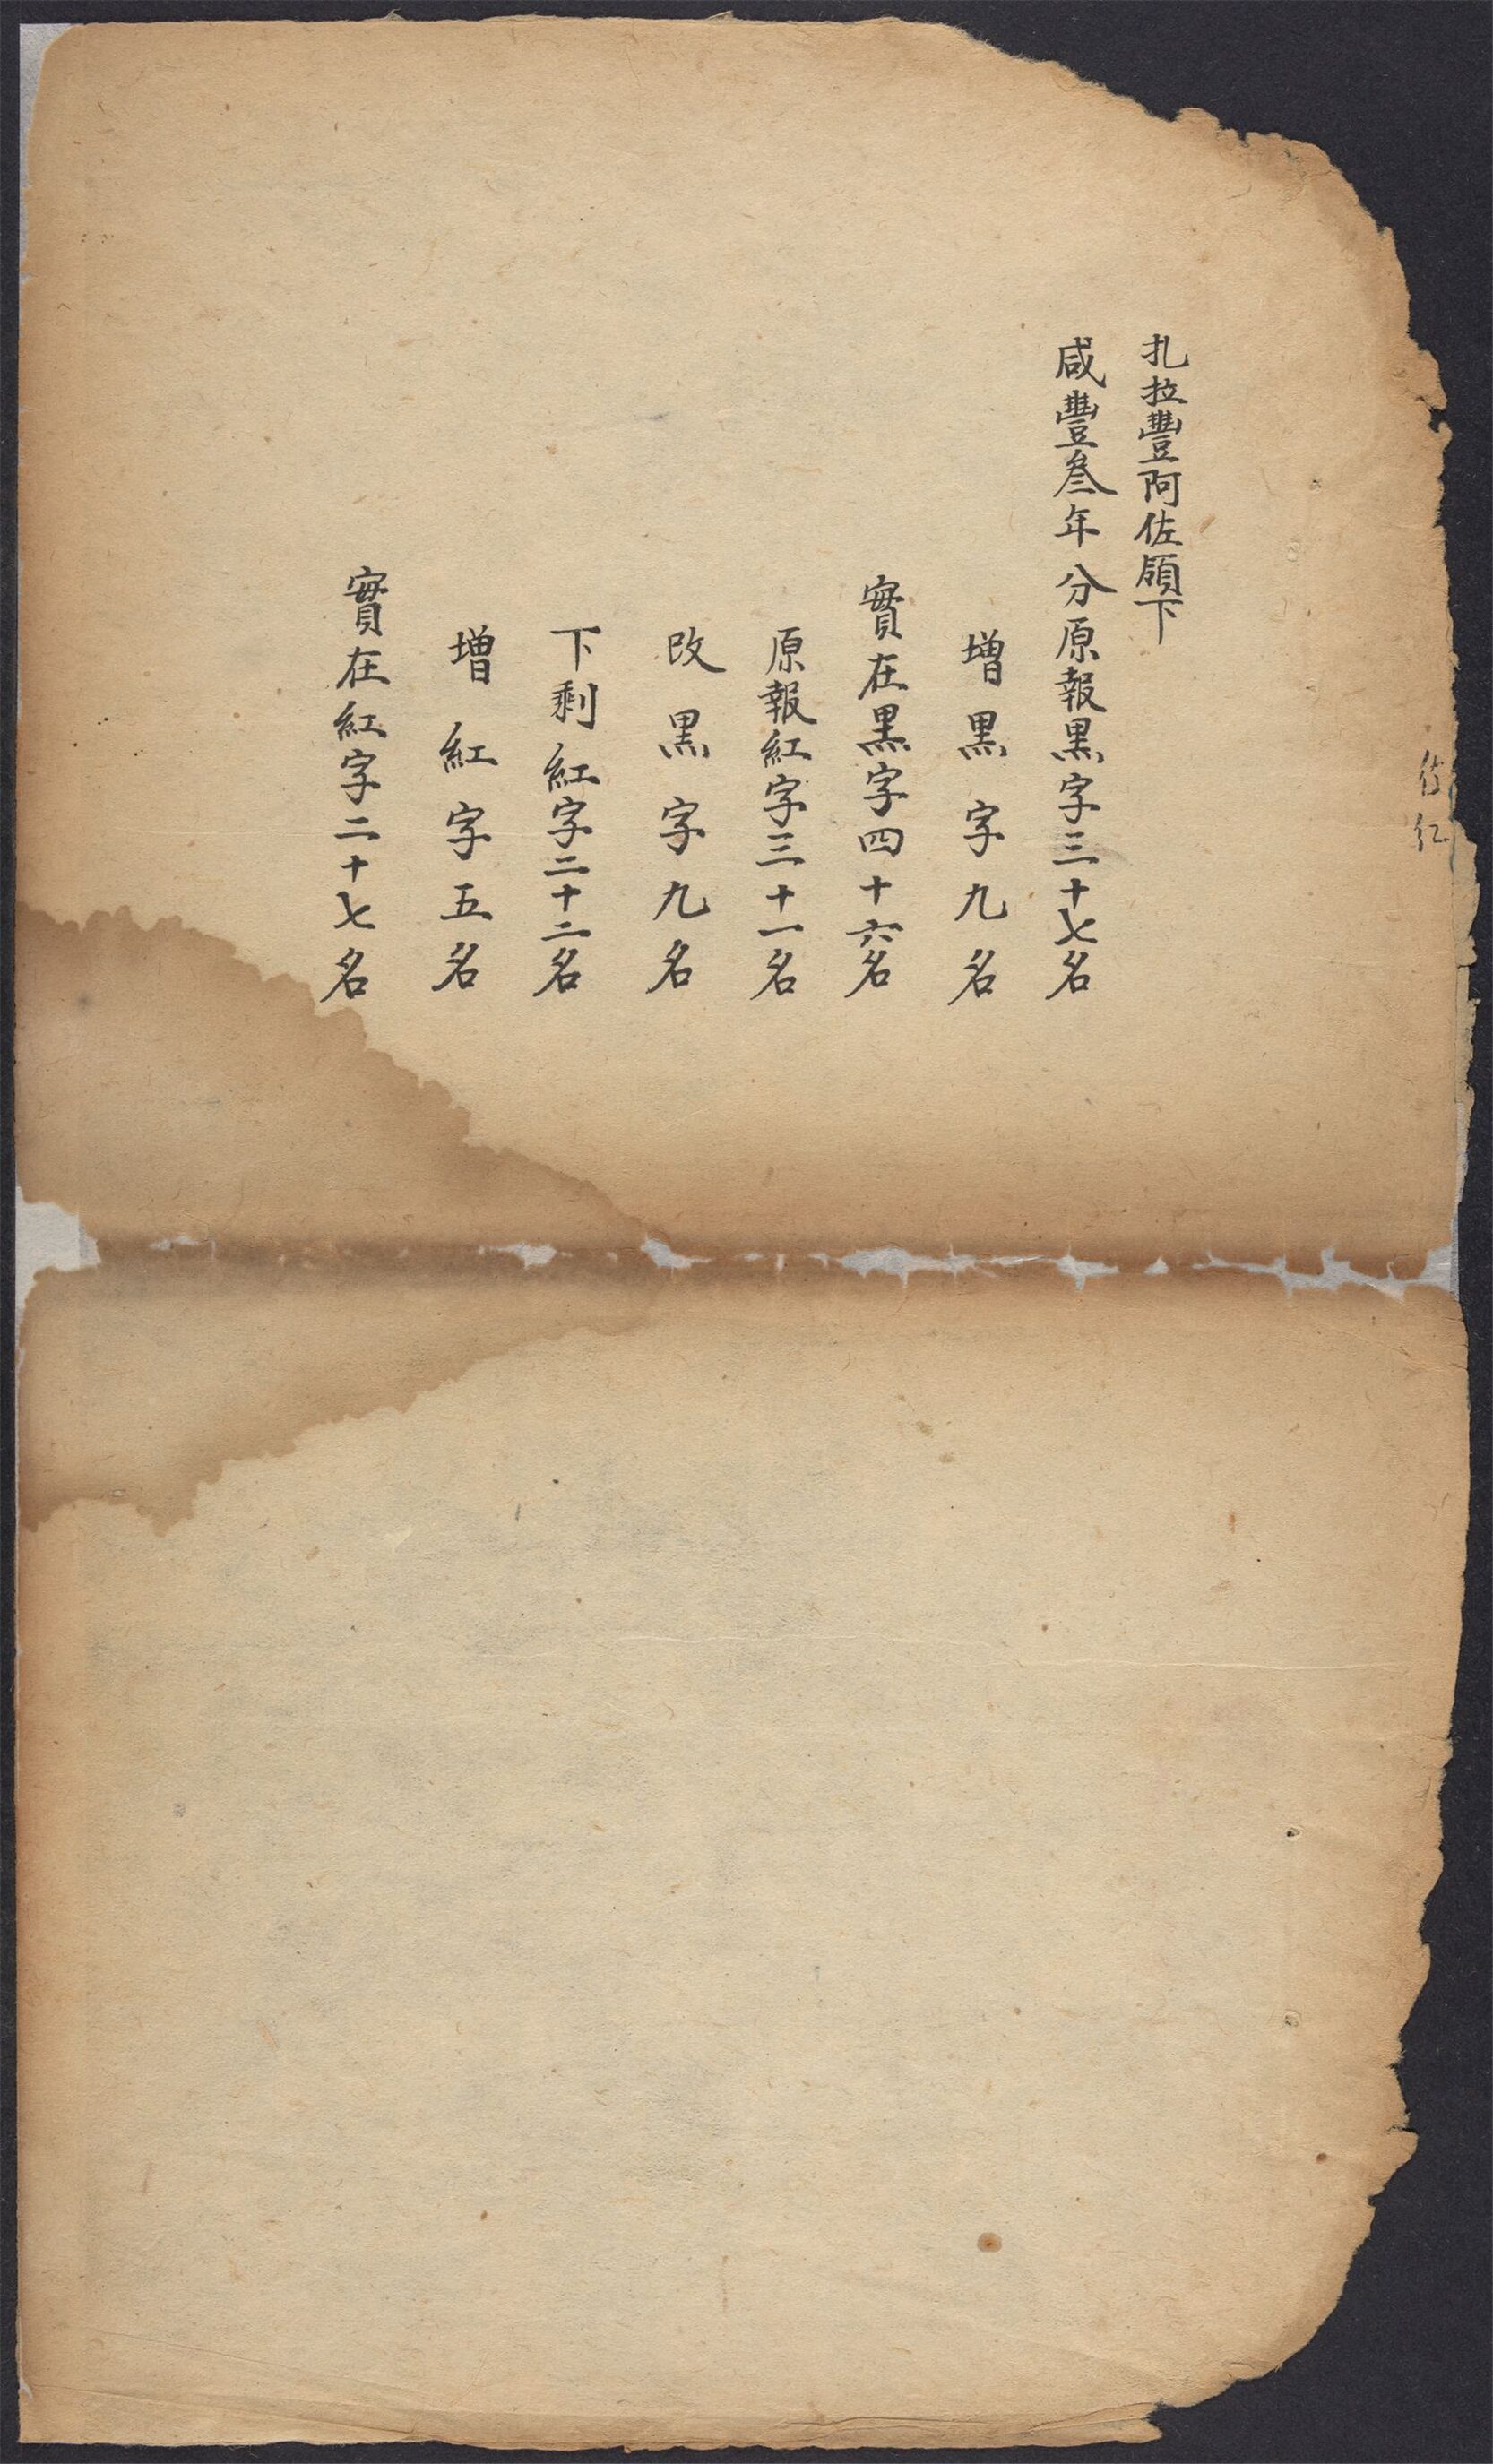 扎拉豐阿佐領下
咸豐叄年分原報黑字三十七名
增黑字九名
實在黑字四十六名
原報紅字三十一名
改黑字九名
下剩紅字二十二名
增紅字五名
實在紅字二十七名